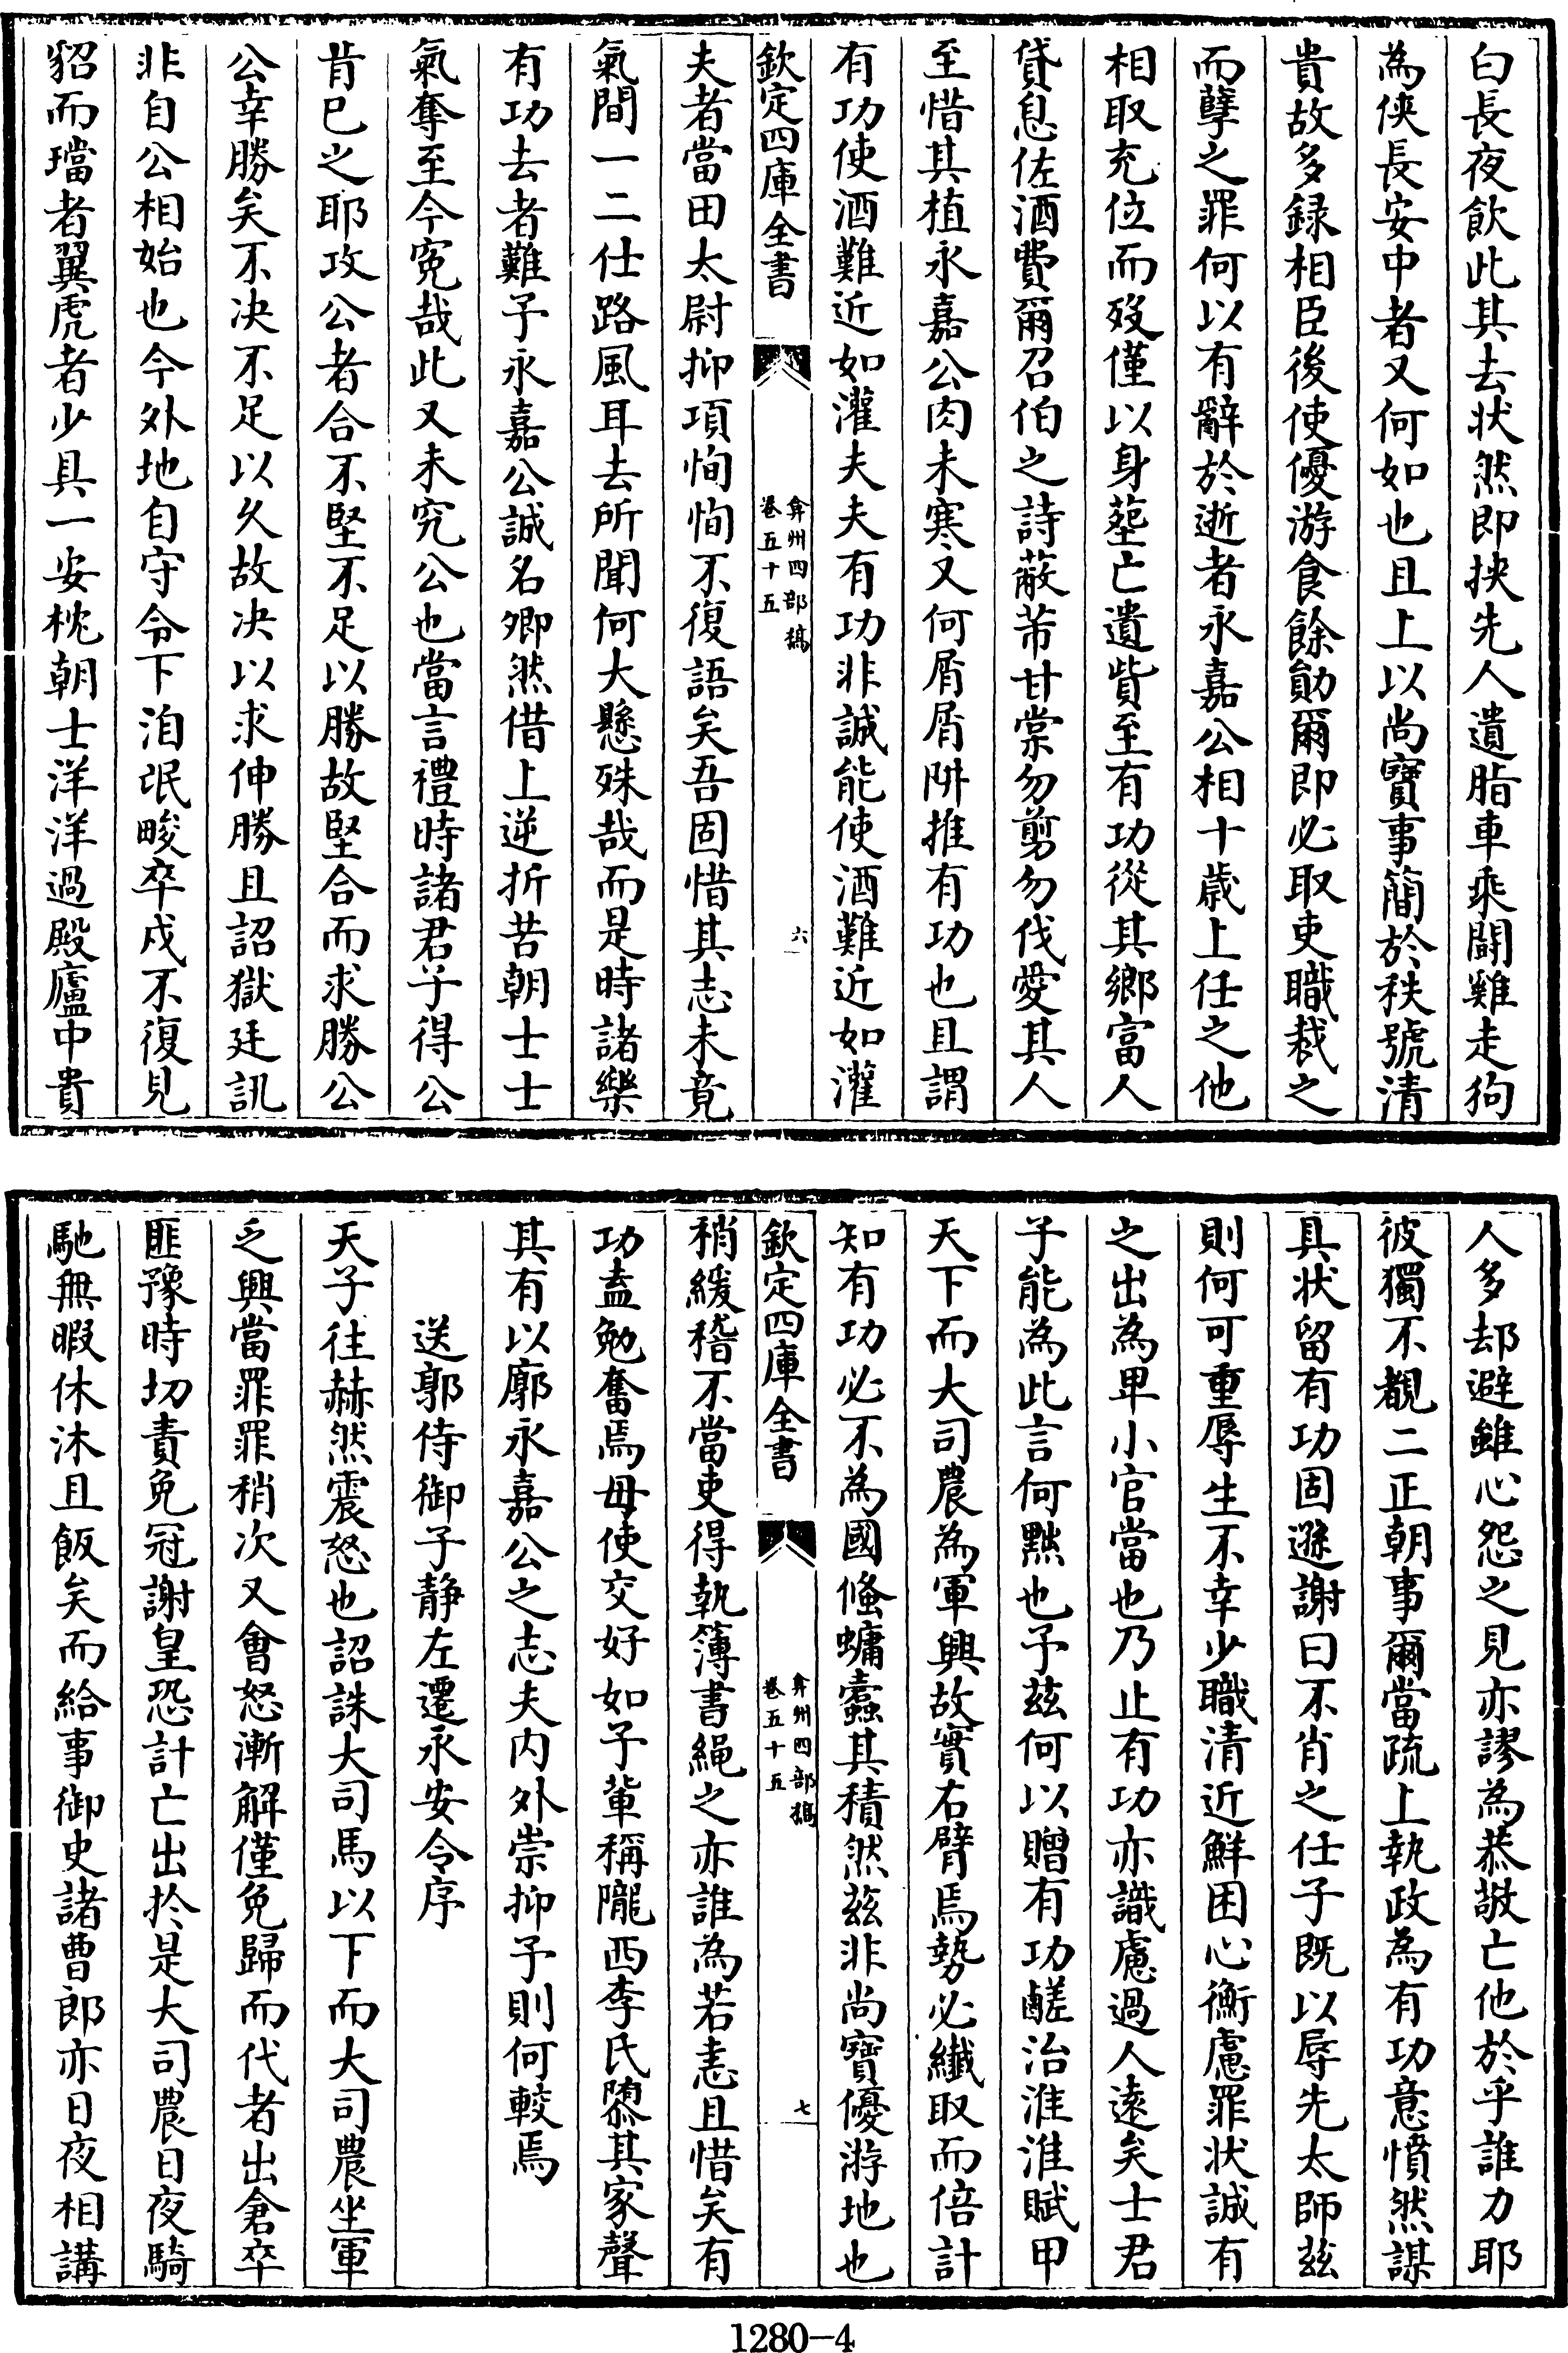 白長夜飲此其去状然即挾先人遺脂車乘鬭雞走狗
為俠長安中者又何如也且上以尚寶事簡於秩號清
貴故多録相臣後使優游食餘勛爾即必取吏職裁之
而孽之罪何以有辭於逝者永嘉公相十歲上任之他
相取充位而歿僅以身葬亡遺貲至有功從其鄉富人
貸息佐酒費爾召伯之詩蔽芾甘棠勿剪勿伐愛其人
至惜其植永嘉公肉未寒又何屑屑阱推有功也且謂
有功使酒難近如灌夫夫有功非誠能使酒難近如灌
欽定四庫全書
弇州四部稿
卷五十五
六
夫者當田太尉抑項恂恂不復語矣吾固惜其志未竟
氣間一二仕路風耳去所聞何大懸殊哉而是時諸樂
有功去者難予永嘉公誠名卿然借上逆折苦朝士士
氣奪至今寃哉此又未究公也當言禮時諸君子得公
肯巳之耶攻公者合不堅不足以勝故堅合而求勝公
公幸勝矣不决不足以久故决以求伸勝且詔獄廷訊
非自公相始也今外地自守令下洎氓畯卒戍不復見
貂而璫者翼虎者少具一安枕朝士洋洋過殿廬中貴
人多却避雖心怨之見亦謬為恭敬亡他於乎誰力耶
彼獨不覩二正朝事爾當疏上執政為有功意憤然謀
具状留有功固遜謝曰不肖之仕子既以辱先太師兹
則何可重辱生不幸少職清近鮮困心衡慮罪状誠有
之出為卑小官當也乃止有功亦識慮過人遠矣士君
子能為此言何黙也予兹何以贈有功鹺治淮淮賦甲
天下而大司農為軍興故實右臂焉勢必纖取而倍計
知有功必不為國倏蟰蠹其積然兹非尚寶優游地也
欽定四庫全書
弇州四部稿
卷五十五
七
稍緩稽不當吏得執簿書繩之亦誰為若恚且惜矣有
功盍勉奮焉毋使交好如子輩稱隴西李氏隳其家聲
其有以廓永嘉公之志夫内外崇抑予則何較焉
送郭侍御子静左遷永安令序
天子往赫然震怒也詔誅大司馬以下而大司農坐軍
乏興當罪罪稍次又會怒漸解僅免歸而代者出倉卒
匪豫時切責免冠謝皇恐計亡出扵是大司農日夜騎
馳無暇休沐且飯矣而給事御史諸曹郎亦日夜相講
1280-4